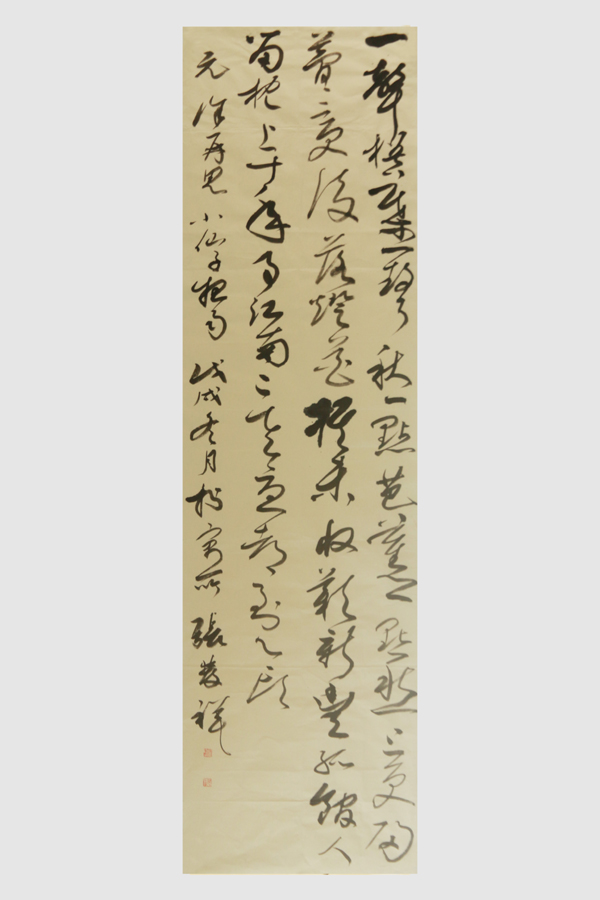 一聲梧葉一聲秋一點芭蕉一點愁三更歸
夢三更後落燈花棋未收歎新豐孤館人
留枕上十年事江南二老憂都到心頭
元徐再思水仙子夜雨戊戌冬月於寓所張發祥